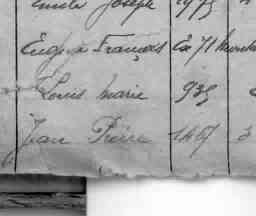 Joseph
Eugène François Ex 71
Louis Marie 935
Jean Pierre 1467 3